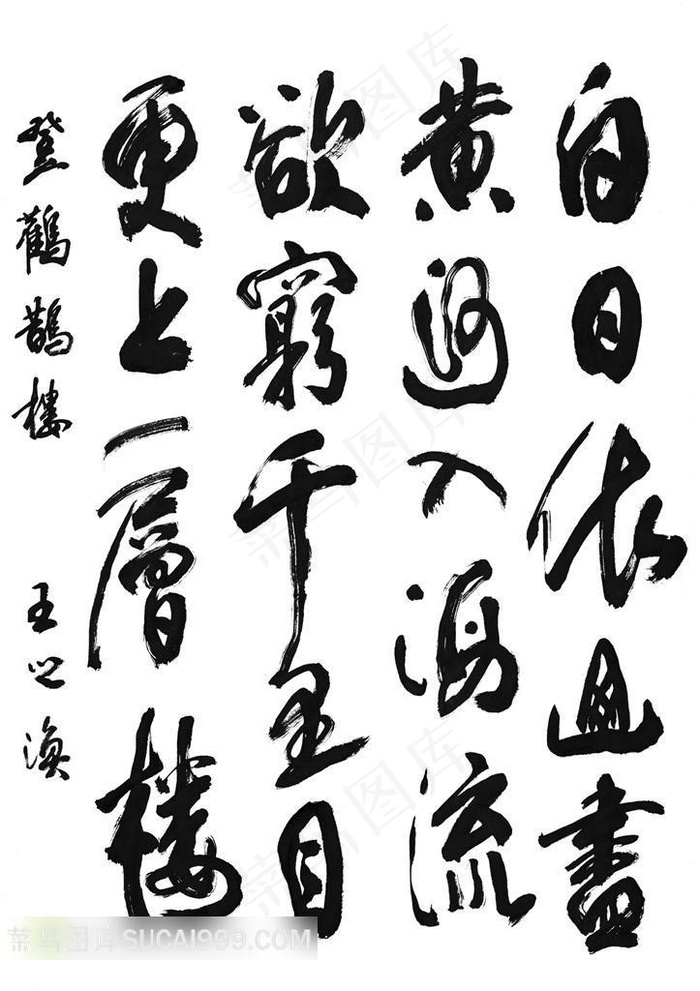 白日依山盡
黃河入海流
欲窮千里目
更上一層樓
登鸛鵲樓
王之渙
菜鸟图库
菜鸟图库 SUCAI999.COM